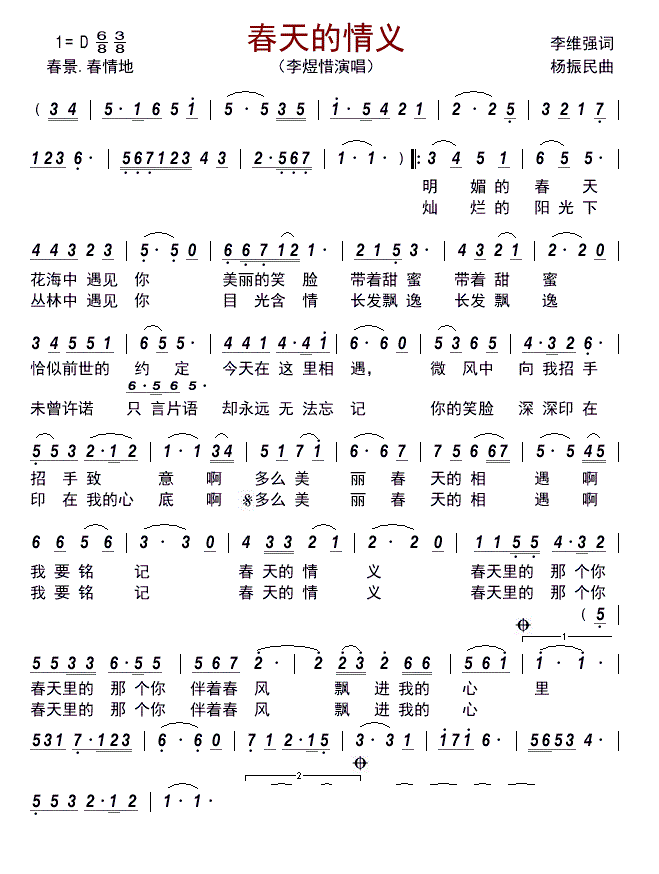 春天的情义
1= D 6/8 3/8
李维强词
春景.春情地
（李煜惜演唱）
杨振民曲
( 3 4 | 5 · 1 6 5 1 | 5 · 5 3 5 | 2 · 4 2 1 6 1 | 2 · 2 5 | 3 2 1 7 |
1 2 3 6 · | 5 6 7 1 2 3 4 3 | 2 · 5 6 7 | 1 · 1 · ) ‖: 3 4 5 1 | 6 5 5 · |
明 媚的 春 天
灿 烂的 阳光下
4 4 3 2 3 | 5 · 5 0 | 6 6 6 7 1 2 1 | 2 1 5 3 · | 4 3 2 1 | 2 · 2 0 |
花海中遇见 你 美丽的笑 脸 带着甜 蜜 带着 甜 蜜
丛林中遇见 你 目 光含 情 长发飘 逸 长发飘 逸
3 4 5 5 1 | 6 5 5 · | 4 4 1 4 · 4 1 | 6 · 6 0 | 5 3 6 5 | 4 · 3 2 6 · |
恰似前世的 约 定 今天在 这 里相 遇， 微 风中 向 我招 手
6 · 5 6 5 ·
未曾许诺 只 言片语 却永远 无 法忘 记 你的笑脸 深 深印 在
5 5 3 2 · 1 2 | 1 · 1 3 4 | 5 1 7 1 | 6 · 6 7 | 7 5 6 6 7 | 5 · 5 4 5 |
招 手 致 意 啊 多么 美 丽 春 天的 相 遇 啊
印 在 我的心 底 啊 𝄋多么 美 丽 春 天的 相 遇 啊
6 6 5 6 | 3 · 3 0 | 4 3 3 2 1 | 2 · 2 0 | 1 1 5 5 | 4 · 3 2 |
我 要 铭 记 春 天的 情 义 春天里的 那 个你
我 要 铭 记 春 天的 情 义 春天里的 那 个你
( 5 ·
𝄌 1
5 5 3 3 6 · 5 5 | 5 6 7 2 · | 2 2 3 2 6 6 | 5 6 1 | 1 · 1 · |
春天里的 那 个你 伴着春 风 飘 进 我的 心 里
春天里的 那 个你 伴着春 风 飘 进 我的 心
5 3 1 7 · 1 2 3 | 6 · 6 0 | 7 1 2 · 1 5 | 3 · 3 1 | 1 7 1 6 · | 5 6 5 3 4 · |
2 𝄌
5 5 3 2 · 1 2 | 1 · 1 ·